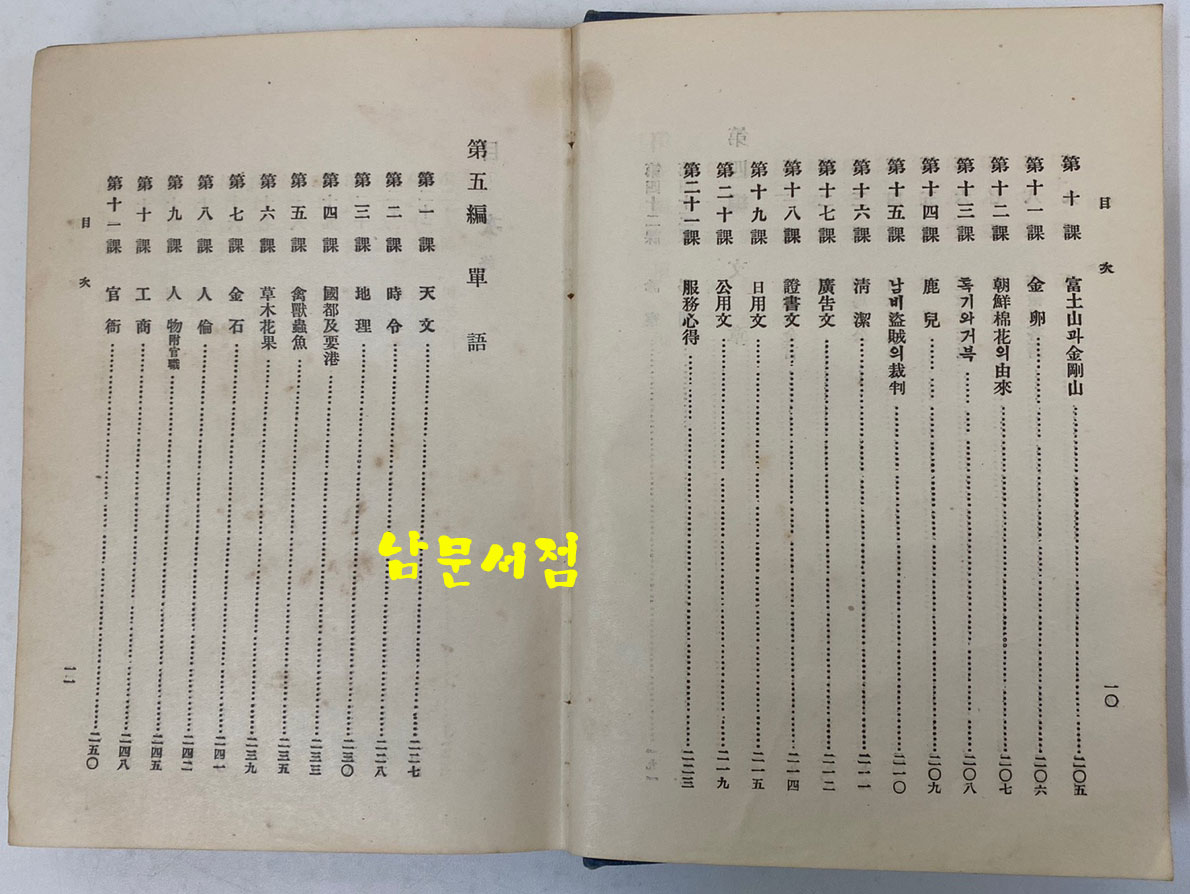 目次
第十課 富士山과金剛山 二〇五
第十一課 金卵 二〇六
第十二課 朝鮮棉花의由來 二〇七
第十三課 톡기와거북 二〇八
第十四課 鹿兒 二〇九
第十五課 남비盜賊의裁判 二一〇
第十六課 淸潔 二一一
第十七課 廣告文 二一二
第十八課 證書文 二一四
第十九課 日用文 二一五
第二十課 公用文 二一九
第二十一課 服務心得 二二三
一〇
第五編 單語
第一課 天文 二二七
第二課 時令 二二八
第三課 地理 二三〇
第四課 國都及要港 二三三
第五課 禽獸蟲魚 二三五
第六課 草木花果 二三九
第七課 金石 二四一
第八課 人倫 二四二
第九課 人物附官職 二四五
第十課 工商 二四八
第十一課 官衙 二五〇
目次
一一
남문서점